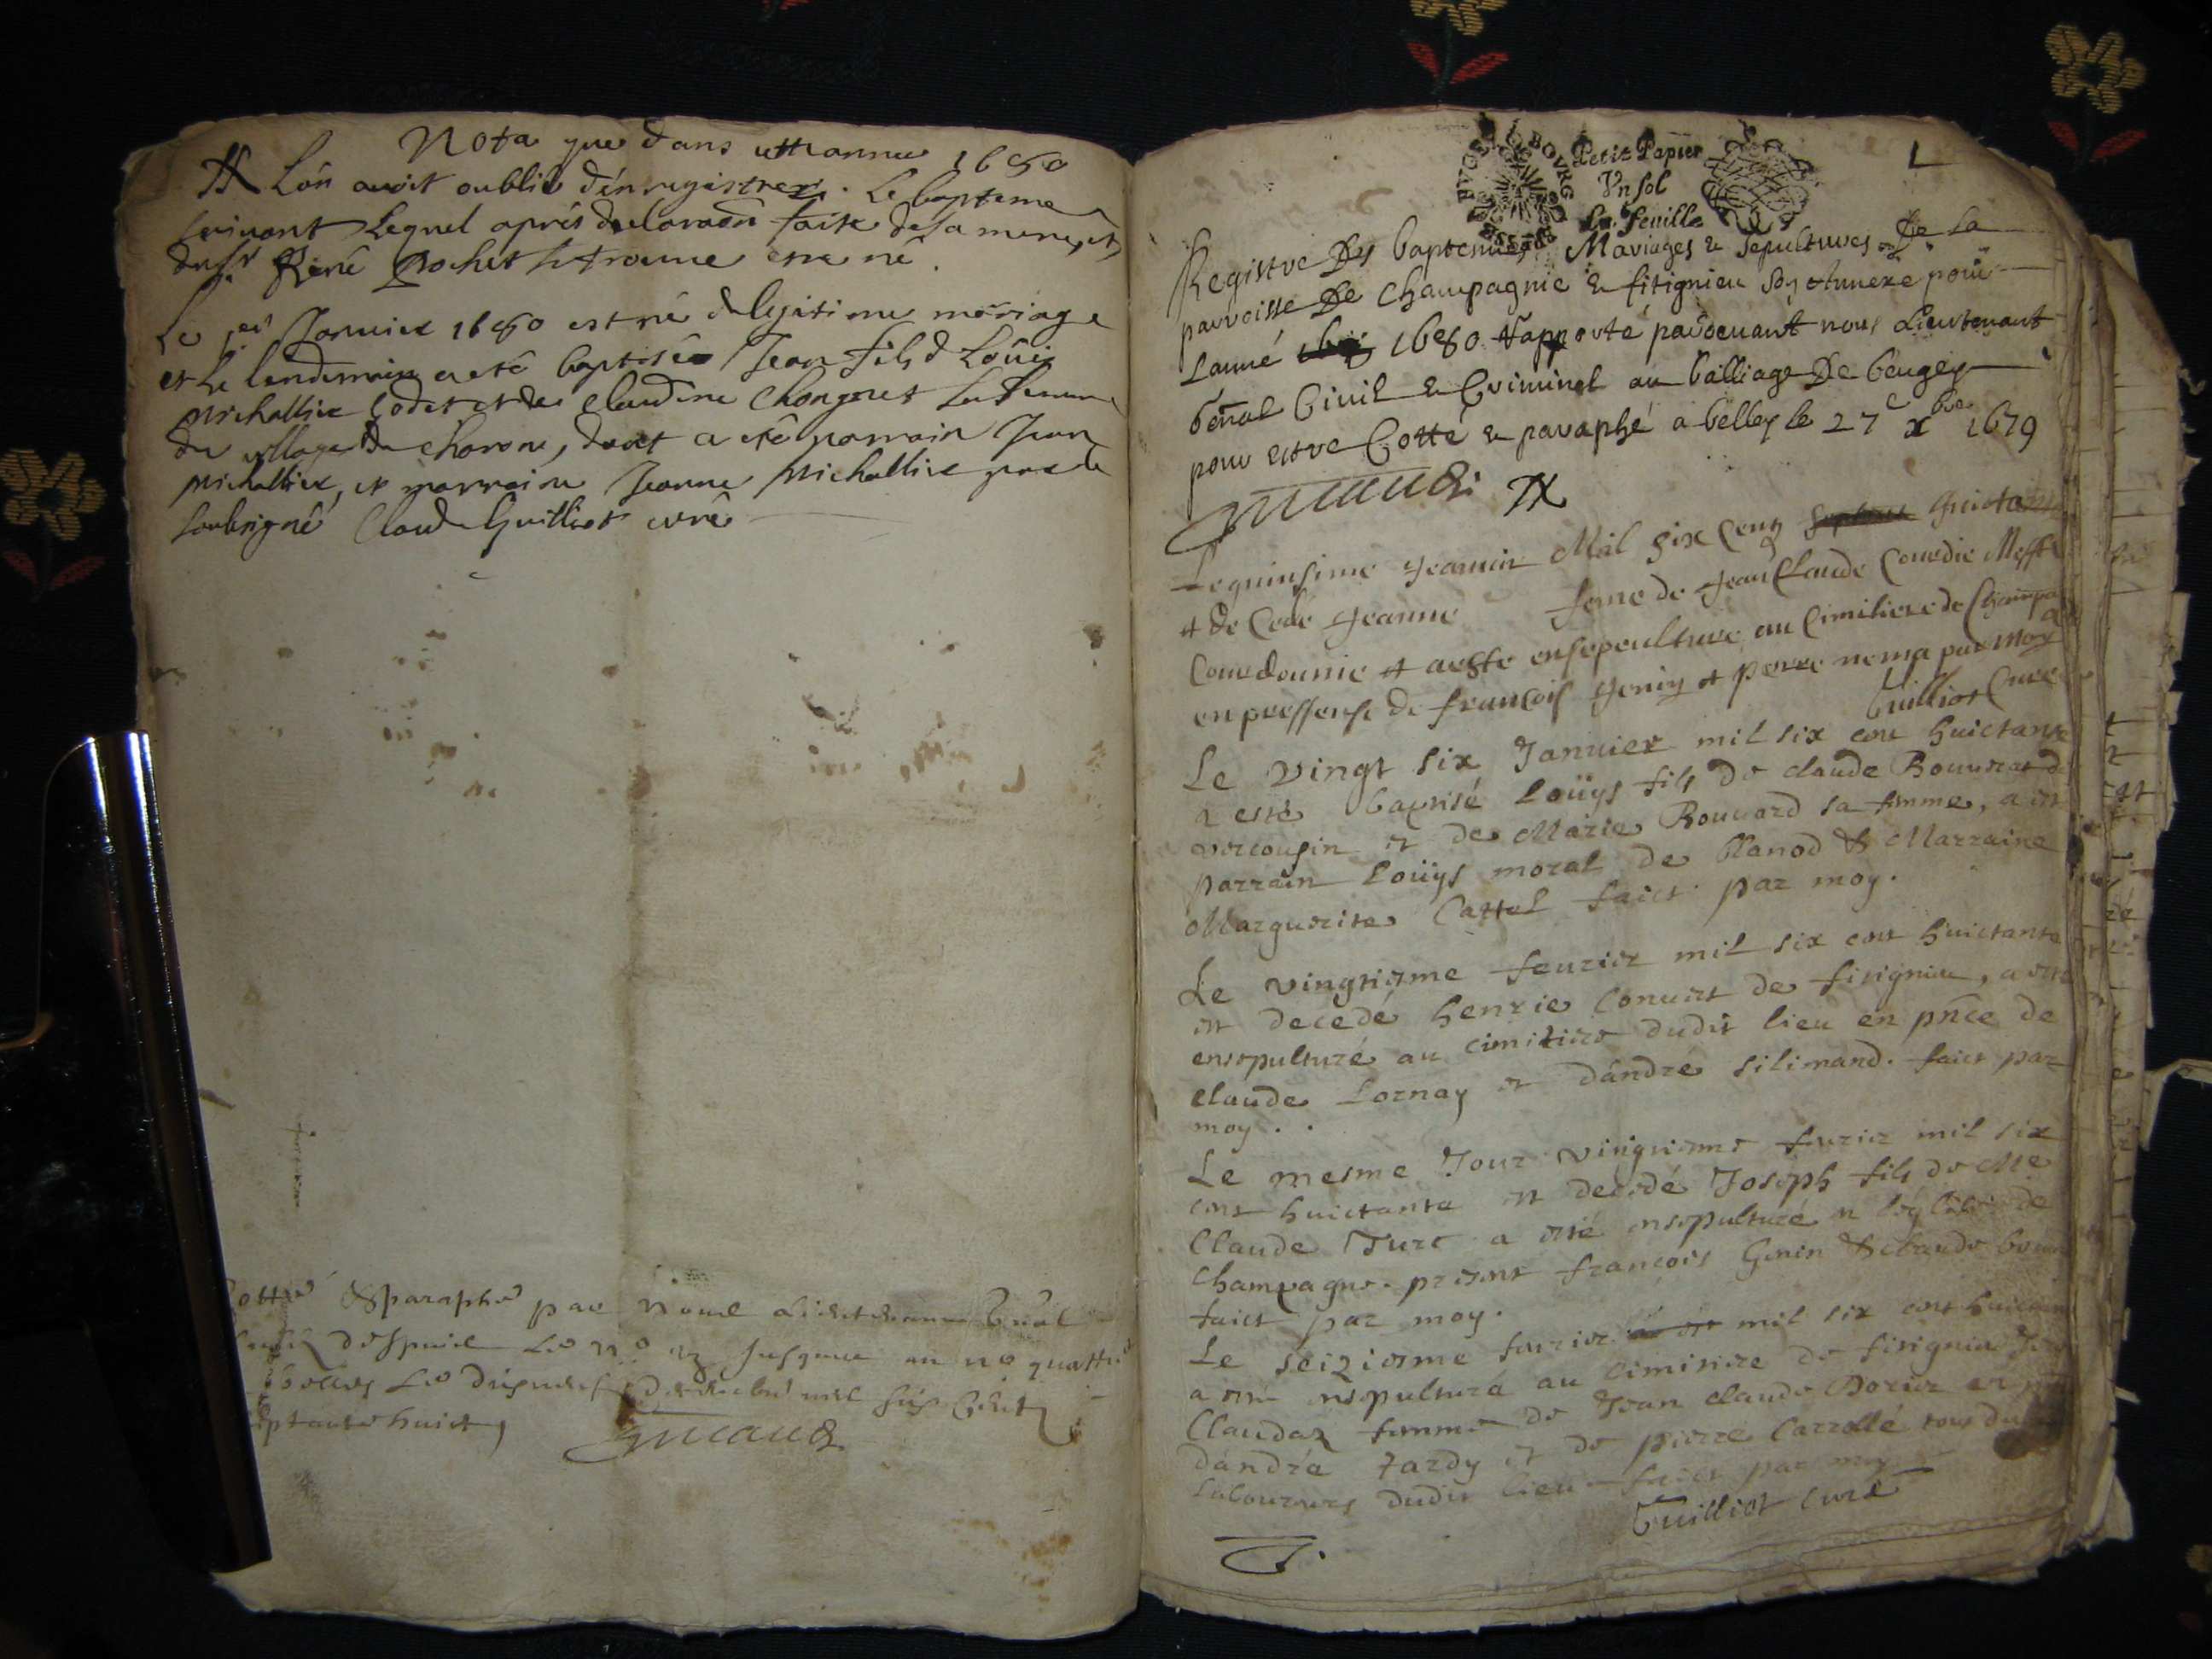 Nota que dans cette annee 1680
Lon avoit oublié d'enregistrer. Le bapteme
suivant Lequel aprés declaraon faite de sa mere, et
du Sr René Rochet se trouve
Le per Janvier 1680 est né de legitime mariage
et le lendemain a eté baptisé Jean fils de Loüis
Michallier et de Claudine Changnet sa femme
du village de Charone, dont a eté parrain Jean
Michallier, et marraine Jeanne Michallier par le
soubsigné Claude Guilliot curé
Cotté & paraphé par Nous Lieutenant Gnal
despuis le no un jusques au no quattre
à belley le decembre mil six cents
septante huict,
BOURG
Petit Papier
Vn sol
La feuille
1
Registre Des baptemes Mariages & sepultures De La
parroisse De Champagnie & fitignieu son Annexe pour
Lanné 1680 rapporté pardevant nous Lieutenant
General Civil & Criminel au balliage De beugey
pour estre Cotté & paraphé a belley le 27e xbre 1679
Le quinsime Jeanvier Mil six cens huictante
et de Cedé Jeanne feme de Jean Claude
et aeste ensepeulture au Cimitiere de Champa
en pressense de françois Jenin et perre nema par moy
Guilliot Curé
Le vingt six Janvier mil six cent huictante
a esté baptisé Loüys fils de claude Bouverat de
vercousin et de Marie Bouvard sa femme, a esté
parrain Loüys moral de Blanod & Marraine
Marguerite Cattel faict par moy.
Le vingtiesme feuvrier mil six cent huictante
est decedé henrie Convert de fitignieu, a esté
ensepulturé au cimitiere dudit lieu en pnce de
claude Lornay et d'andré silimand. faict par
moy.
Le mesme Jour vingtiesme feuvrier mil six
cent huictante est decedé Joseph fils de Me
Claude Turc a esté ensepulturé en l'eglise de
Champagne. present françois Genin & claude
faict par moy.
Le seiziesme feuvrier mil six cent huictante
a esté ensepulturé au cimitiere de fitignieu
Claudaz femme de Jean claude Borier en
d'andré tardy et de pierre Carrollé tous deux
laboureurs dudit lieu faict par moy
Guilliot curé